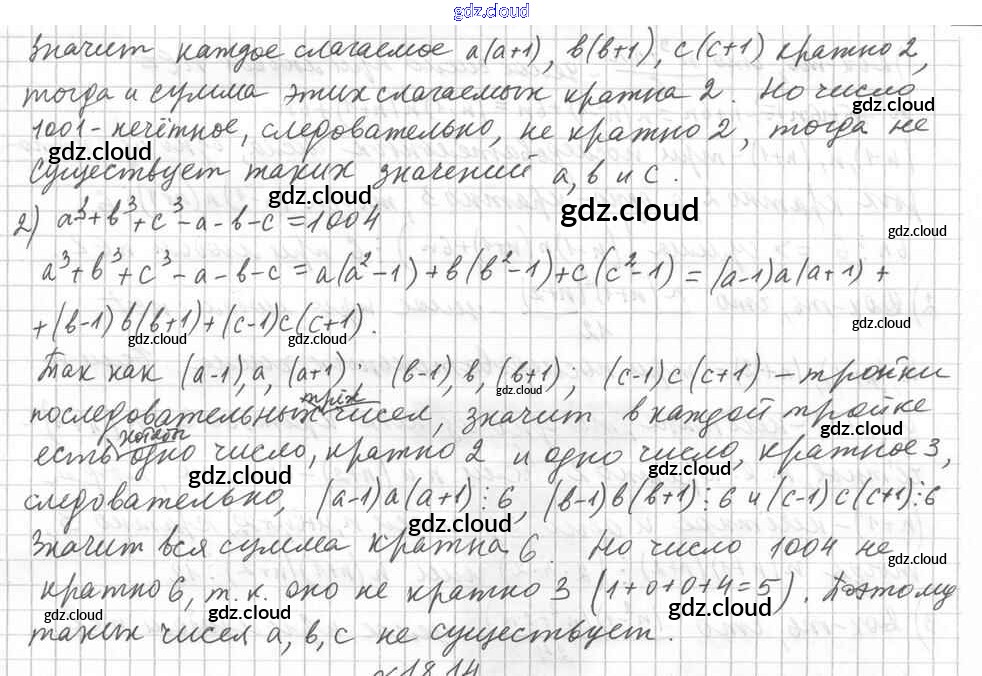 gdz.cloud
Значит каждое слагаемое a(a+1), b(b+1), c(c+1) кратно 2,
тогда и сумма этих слагаемых кратна 2. Но число
gdz.cloud
1001 - нечётное, следовательно, не кратно 2, тогда не
gdz.cloud
существует таких значений a, b и c.
gdz.cloud
gdz.cloud
2) a³+b³+c³-a-b-c=1004
gdz.cloud
a³+b³+c³-a-b-c=a(a²-1)+b(b²-1)+c(c²-1)=(a-1)a(a+1)+
+(b-1)b(b+1)+(c-1)c(c+1).
gdz.cloud
gdz.cloud
gdz.cloud
Так как (a-1), a, (a+1); (b-1), b, (b+1); (c-1)c(c+1) - тройки
gdz.cloud
трёх
последовательных чисел, значит в каждой тройке
gdz.cloud
хотябы
есть одно число, кратно 2 и одно число, кратное 3,
gdz.cloud
gdz.cloud
следовательно, (a-1)a(a+1)⋮6, (b-1)b(b+1)⋮6 и (c-1)c(c+1)⋮6
gdz.cloud
Значит вся сумма кратна 6. Но число 1004 не
gdz.cloud
кратно 6, т.к. оно не кратно 3 (1+0+0+4=5). Поэтому
gdz.cloud
gdz.cloud
gdz.cloud
таких чисел a, b, c не существует.
18.14